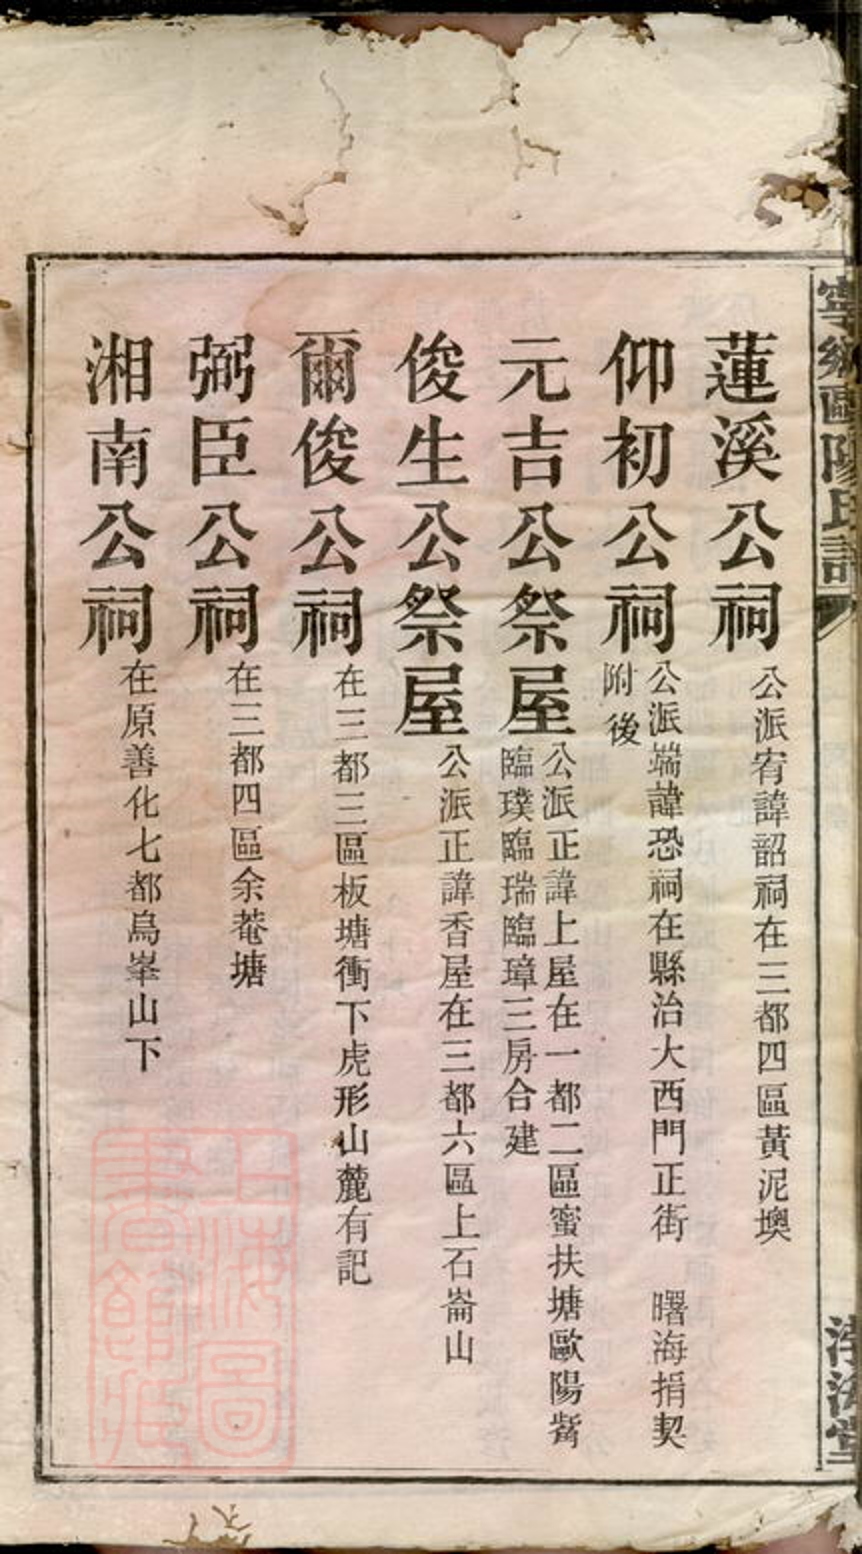 寧鄉歐陽氏譜
蓮溪公祠
公派宥諱韶祠在三都四區黃泥墺
仰初公祠
公派端諱恐祠在縣治大西門正街 曙海捐契
附後
元吉公祭屋
公派正諱上屋在一都二區蜜扶塘歐陽觜
臨璞臨瑞臨璋三房合建
俊生公祭屋
公派正諱香屋在三都六區上石崙山
爾俊公祠
在三都三區板塘衝下虎形山麓有記
弼臣公祠
在三都四區余菴塘
湘南公祠
在原善化七都烏峯山下
上海圖
書館藏